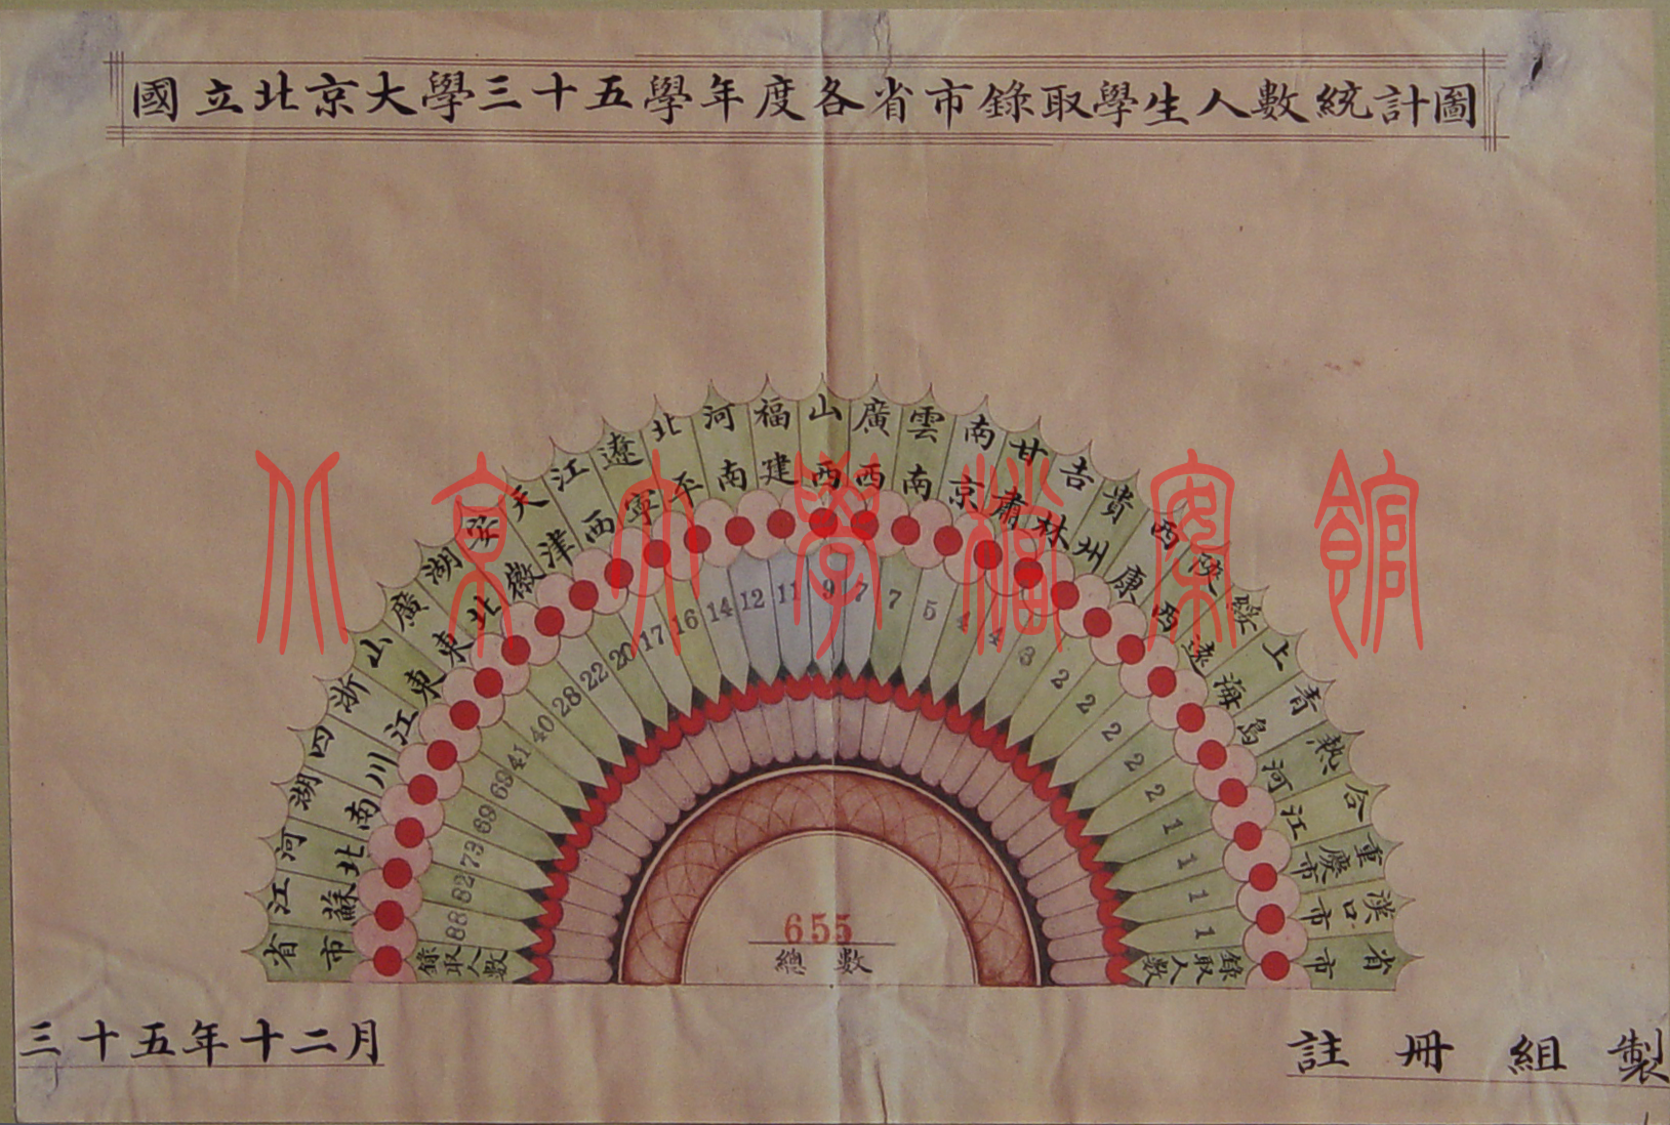 國立北京大學三十五學年度各省市錄取學生人數統計圖
省市 錄取人數
江蘇 88
河北 82
湖南 73
四川 69
浙江 69
山東 41
廣東 40
湖北 28
安徽 22
天津 20
江西 17
遼寧 16
北平 14
河南 12
福建 11
山西 9
廣西 7
雲南 7
南京 5
甘肅 4
吉林 4
貴州 3
西康 2
陝西 2
綏遠 2
上海 2
青島 2
熱河 1
合江 1
重慶市 1
漢口市 1
省市 錄取人數
655
總數
三十五年十二月
註冊組製
北京大學檔案館